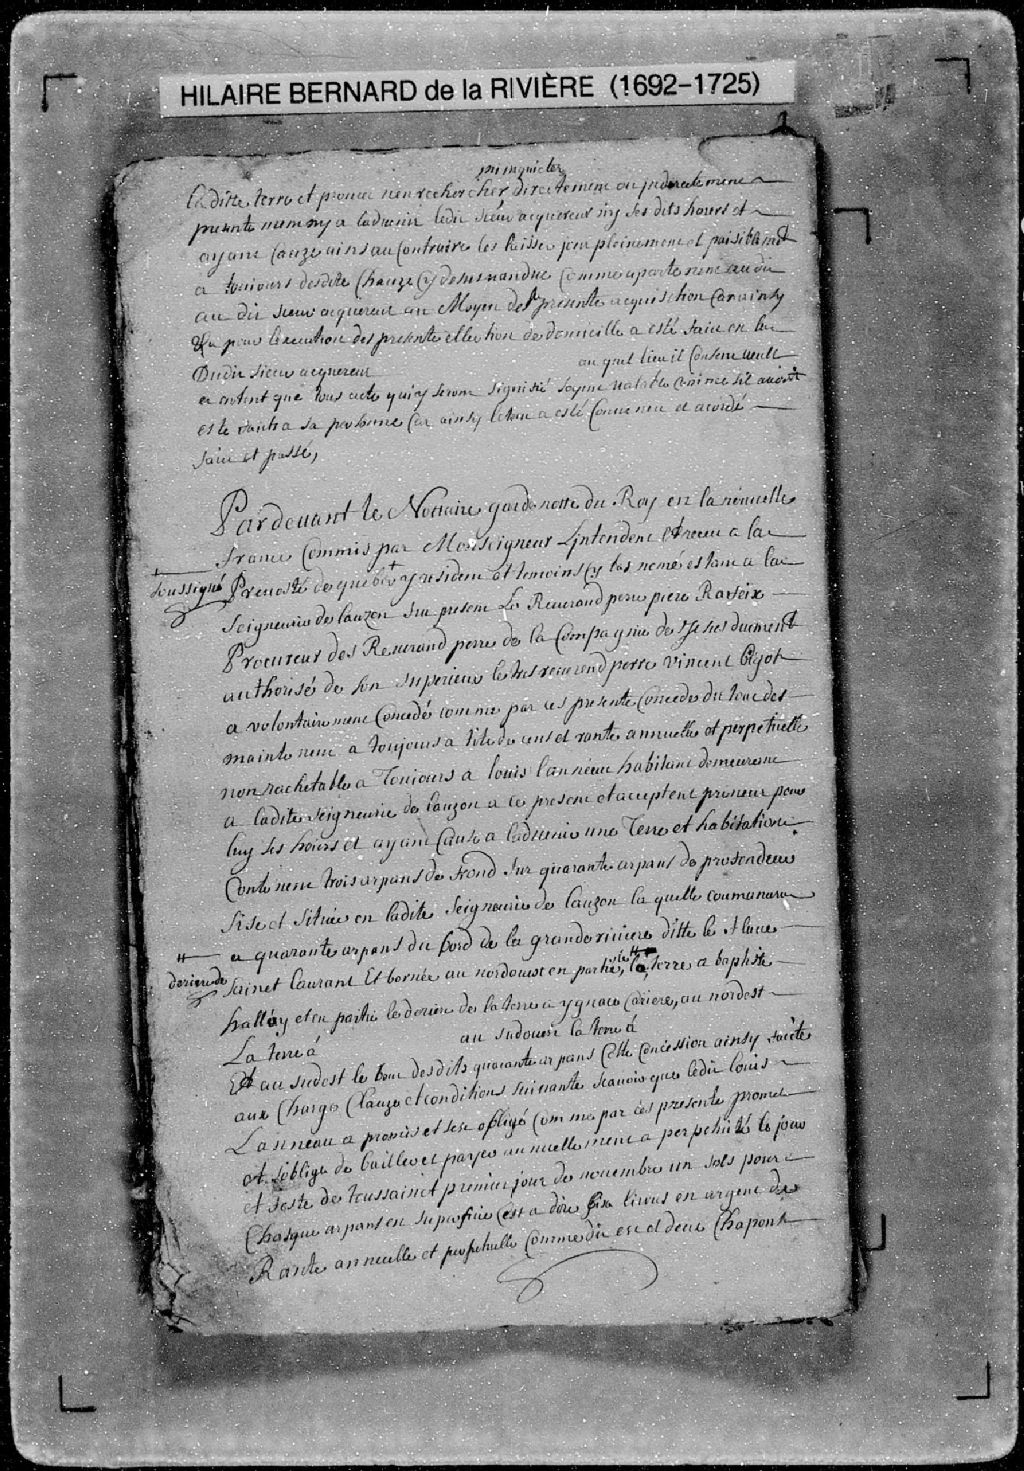 HILAIRE BERNARD de la RIVIÈRE (1692-1725)
ny inquieter
la ditte terre et promet nen rechercher directement ou indirectement
presente nemmy a ladvenir ledit sieur acquereur ny ses dits hoirs et
ayant Cauze ains au Contraire les laisser jouir pleinement et paisiblement
a toujours desdite Chauze Cy desus vandue Comme apartenent audit
au dit sieur acquereur au Moyen de la presente acquisition Car ainsy
Et pour lexecution des presente ellection de domicille a esté faict en la
Dudit sieur acquereur au quel lieu il Consent veult
et entent que tous acte quiy seront signiffié soyent valable comme sil avoit
esté a sa personne Car ainsy letout a esté Convenu et acordé
faict et passé,
Pardevant le Nottaire garde notte du Roy en la nouvelle
france Commis par Monseigneur Lintendent Et receu a la
soussigné
Prevosté de quebec y resident et temoins Cy bas nomé estant a la
seigneurie de lauzon fut present Le Reverand perre piere Rafeix
Procureur des Reverand perre de la Compagnie de Jesus dument
authorisé de son superieur le tres reverend perre vincent Bigot
a volontairement Concedé comme par ces presente Concede du tout des
maintenent a toujours a titre de cens et rante annuelle et perpetuelle
non rachetable a Toujours a louis lanneau habitant demeurant
a ladite seigneurie de lauzon a ce present et acceptent preneur pour
luy ses hoirs et ayant Cause a ladvenir une Terre et habitation
Contenent trois arpans de frond sur quarante arpans de profondeur
sise et située en ladite seigneurie de lauzon la quelle commancera
a quarante arpans du bord de la grande riviere ditte le fleuve
deriere de
sainct laurant Et bornée au nordouest en partie, la terre a baptiste
hallay et en partie le deriere de la terre a ygnace Cariere, au nordest
La terre á au sudouest la terre á
Et au sudest le bout desdits quarante arpans Cette Concession ainsy faicte
aux Charges Clauze et conditions suivante scavoir que ledit louis
Lanneau a promis et sest obligé Comme par ces presente promet
et soblige de bailler et payer annuellement a perpetuité le jour
et feste de toussainct premier jour de novembre un sols pour
Chasque arpans en superficie Cest a dire six livres en argent de
Rante annuelle et perpetuelle Comme dit est et deux Chapons